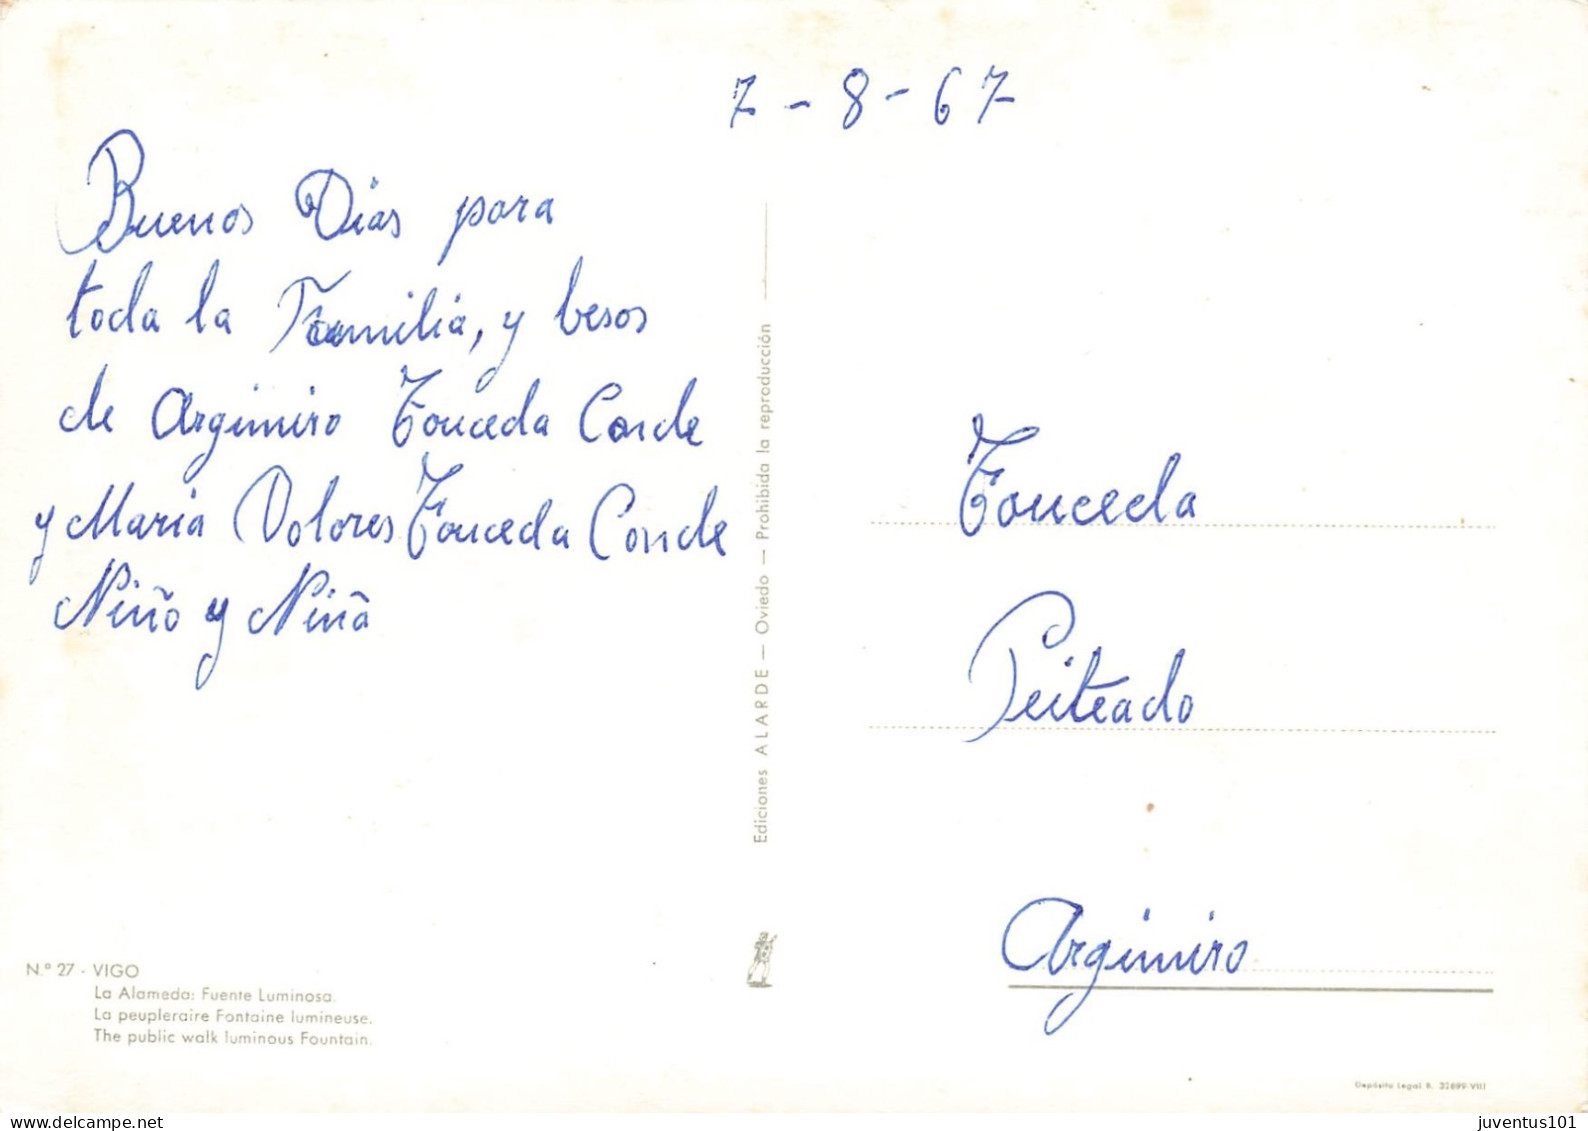 7 - 8 - 67
Buenos Dias para
toda la Familia, y besos
de Argimiro Touceda Conde
y Maria Dolores Touceda Conde
Niño y Niña
Touceda
Peiteado
Argimiro
Ediciones ALARDE — Oviedo — Prohibida la reproducción
N.º 27 - VIGO
La Alameda: Fuente Luminosa.
La peupleraire Fontaine lumineuse.
The public walk luminous Fountain.
Depósito Legal B. 32699-VIII
juventus101